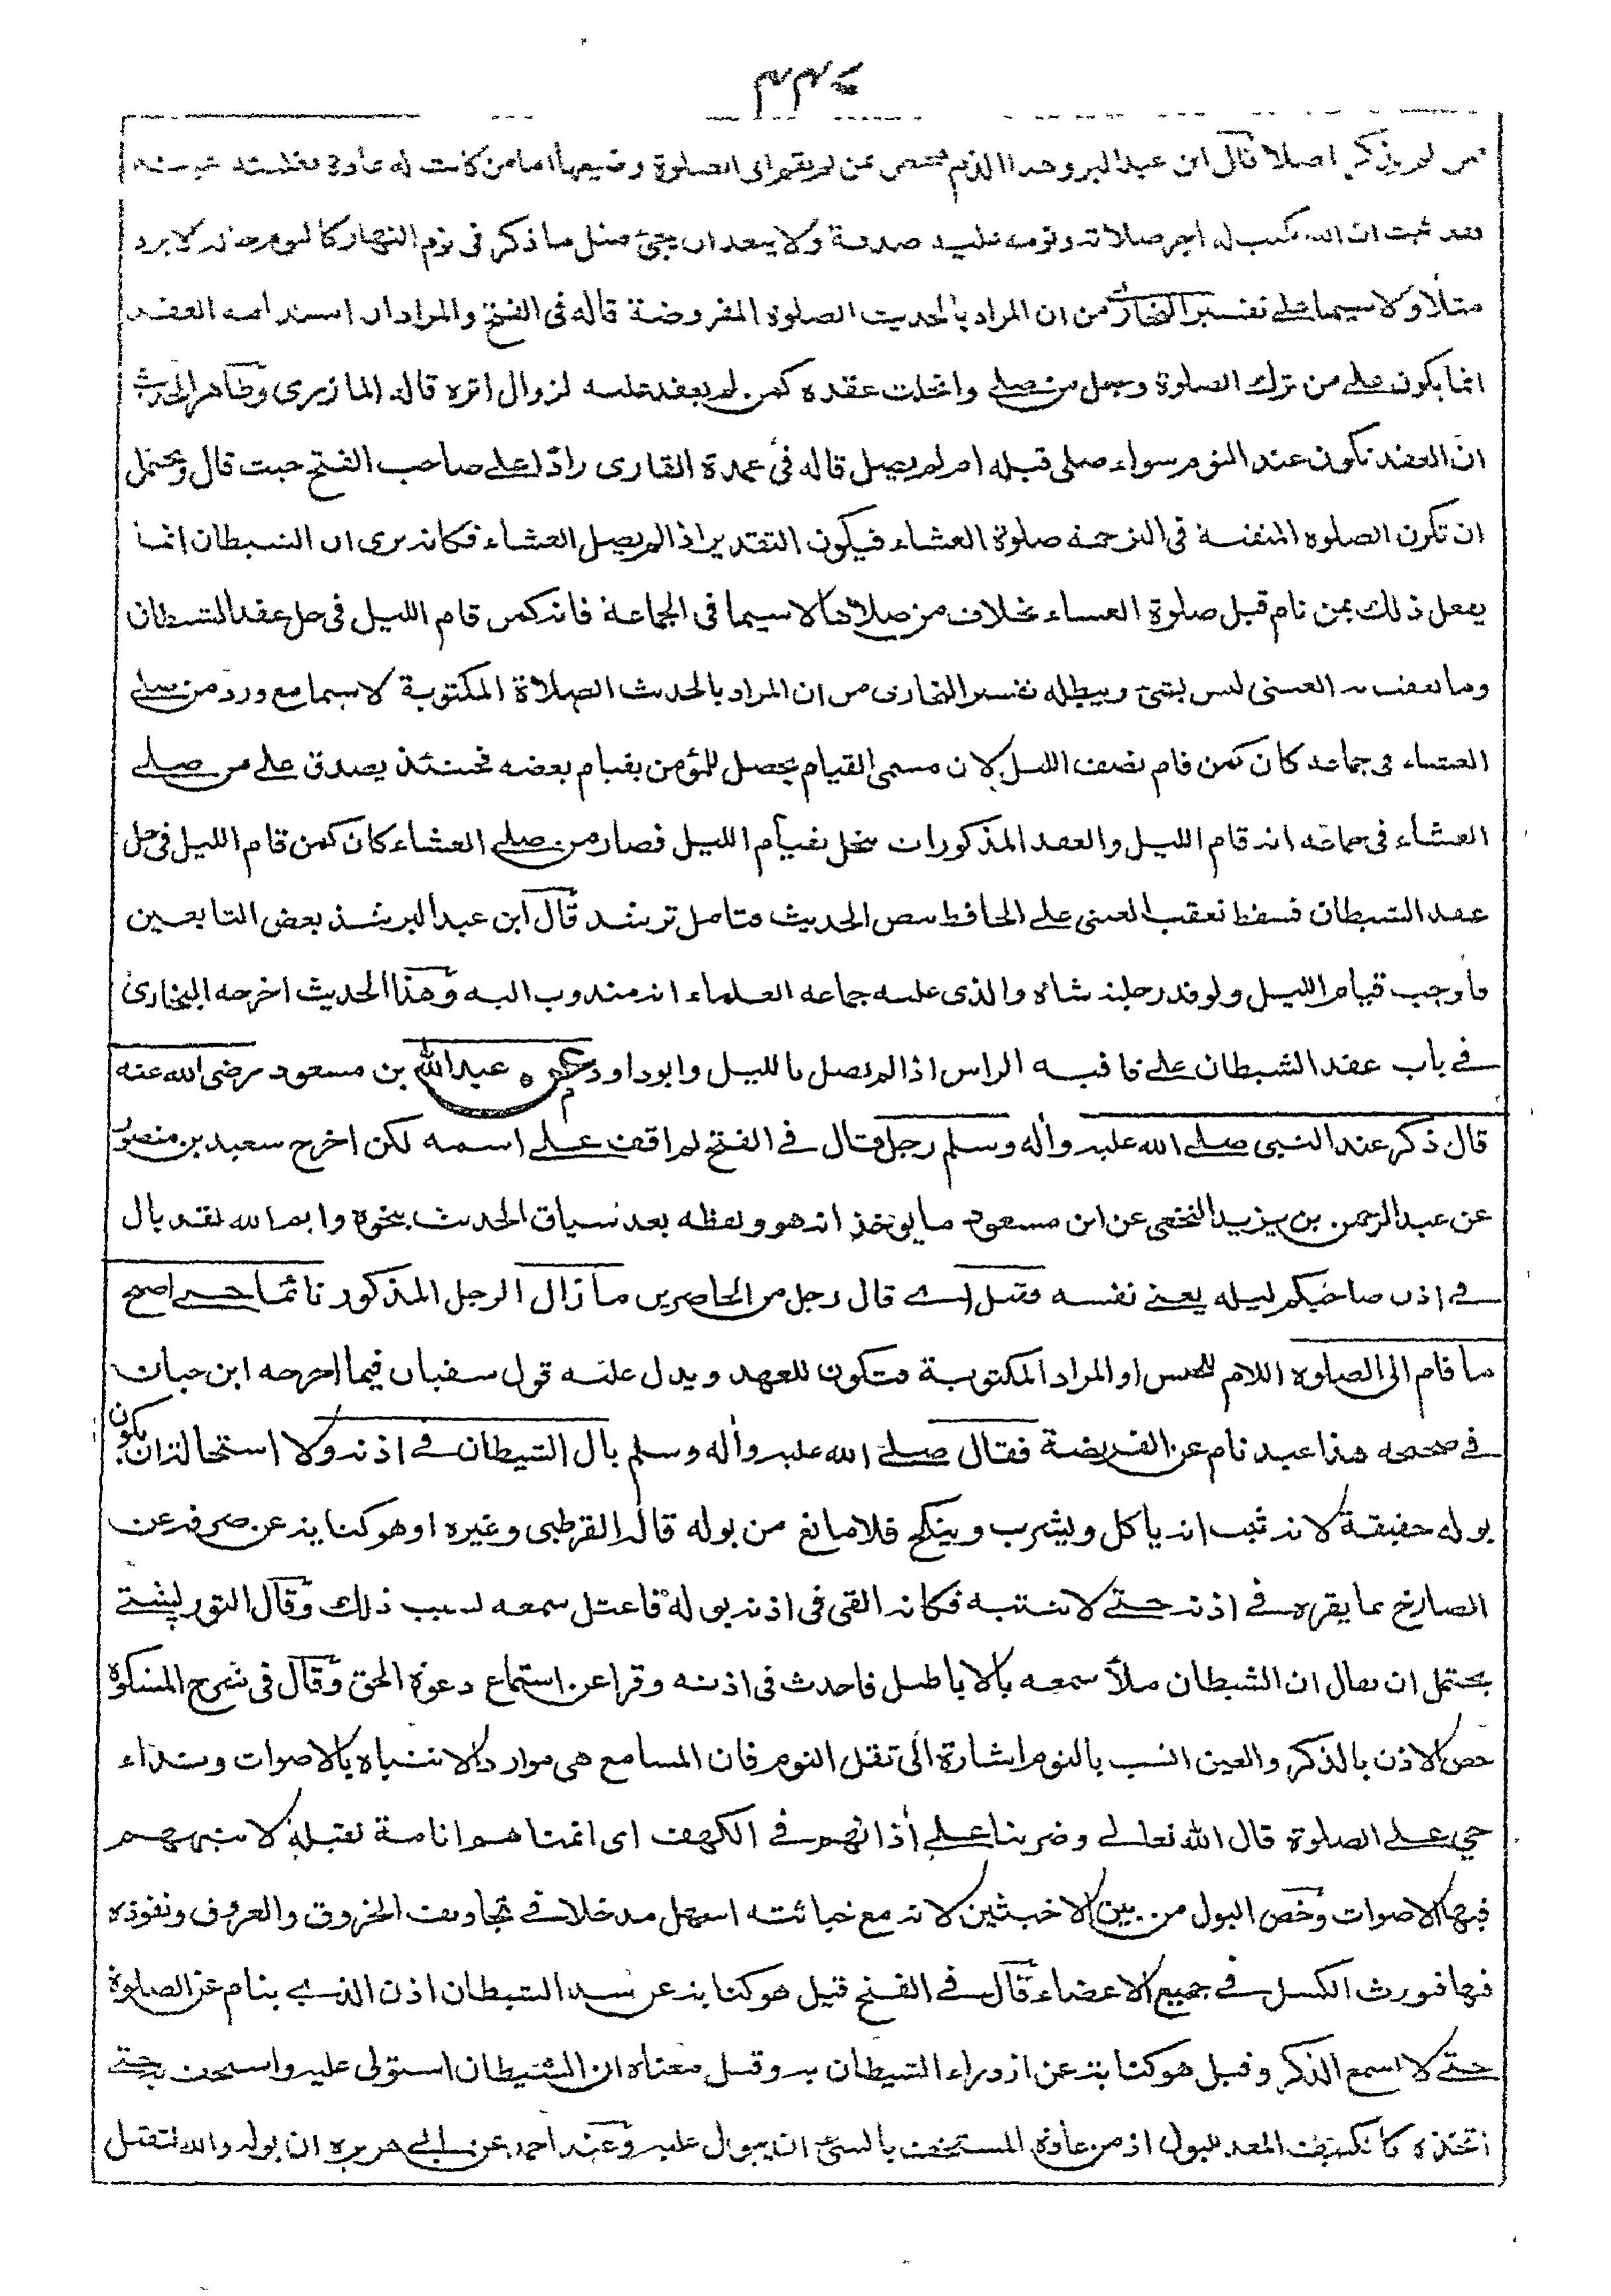 ٣٣٤
من لم يذكر اصلا قال ابن عبد البر وهذا الذم مختص بمن لم يقم الى الصلوة وضيعها أما من كانت له عادة فغلبته عينه
فقد ثبت ان الله يكتب له اجر صلاته ونومه عليه صدقة ولا يبعد ان يجئ مثل ما ذكر فى نوم النهار كالنوم حالة الابراد
مثلا ولا سيما على تفسير البخارى من ان المراد بالحديث الصلوة المفروضة قاله فى الفتح والمراد ان استدامة العقد
انما يكون على من ترك الصلوة وجعل من صلى وانحلت عقده كمن لم يعقد عليه لزوال اثره قاله المازرى وظاهر الحديث
ان العقد تكون عند النوم سواء صلى قبله ام لم يصل قاله فى عمدة القارى رادّا على صاحب الفتح حيث قال ويحتمل
ان تكون الصلوة المنفية فى الترجمة صلوة العشاء فيكون التقدير اذا لم يصل العشاء فكانه يرى ان الشيطان انما
يفعل ذلك بمن نام قبل صلوة العشاء بخلاف من صلاها لا سيما فى الجماعة فانه كمن قام الليل فى حل عقد الشيطان
وما تعقب به العينى ليس بشئ ويبطله تفسير البخارى من ان المراد بالحديث الصلاة المكتوبة لا سيما مع ورد من صلى
العشاء فى جماعة كان كمن قام نصف الليل لان مسمى القيام يحصل للمؤمن بقيام بعضه فحينئذ يصدق على من صلى
العشاء فى جماعة انه قام الليل والعقد المذكورات تنحل بقيام الليل فصار من صلى العشاء كان كمن قام الليل فى حل
عقد الشيطان فسقط تعقب العينى على الحافظ بنص الحديث فتامل ترشد قال ابن عبد البر شذ بعض التابعين
فأوجب قيام الليل ولو قدر حلبة شاة والذى عليه جماعة العلماء انه مندوب اليه وهذا الحديث اخرجه البخارى
فى باب عقد الشيطان على قافية الراس اذا لم يصل بالليل وابو داود وعن عبد الله بن مسعود رضى الله عنه
قال ذكر عند النبى صلى الله عليه وأله وسلم رجل قال فى الفتح لم اقف على اسمه لكن اخرج سعيد بن منصور
عن عبد الرحمن بن يزيد النخعى عن ابن مسعود ما يؤخذ انه هو ولفظه بعد سياق الحديث بنحوه وايم الله لقد بال
فى اذن صاحبكم ليله يعنى نفسه فقيل اى قال رجل من الحاضرين ما زال الرجل المذكور نائما حتى اصبح
ما قام الى الصلوة اللام للجنس او المراد المكتوبة فتكون للعهد ويدل عليه قول سفيان فيما اخرجه ابن حبان
فى صحيحه هذا عبد نام عن الفريضة فقال صلى الله عليه وأله وسلم بال الشيطان فى اذنه ولا استحالة ان يكون
بوله حقيقة لانه ثبت انه ياكل ويشرب وينكح فلا مانع من بوله قاله القرطبى وغيره او هو كناية عن صرفه عن
الصارخ بما يقره فى اذنه حتى لا ينتبه فكانه القى فى اذنه بوله فاعتل سمعه لسبب ذلك وقال التوربشتى
يحتمل ان يقال ان الشيطان ملأ سمعه بالاباطيل فاحدث فى اذنه وقرا عن استماع دعوة الحق وقال فى شرح المشكوة
خص الاذن بالذكر والعين انسب بالنوم اشارة الى ثقل النوم فان المسامع هى موارد الانتباه بالاصوات ونداء
حي على الصلوة قال الله تعالى وضربنا على أذانهم فى الكهف اى انمناهم انامة ثقيلة لا تنبههم
فيها الاصوات وخص البول من بين الاخبثين لانه مع خباثته اسهل مدخلا فى تجاويف الخروق والعروق ونفوذه
فيها فيورث الكسل فى جميع الاعضاء قال فى الفتح قيل هو كناية عن سد الشيطان اذن الذى ينام عن الصلوة
حتى لا اسمع الذكر وقيل هو كناية عن ازدراء الشيطان به وقيل معناه ان الشيطان استولى عليه واستخف به حتى
اتخذه كالكنيف المعد للبول اذ من عادة المستخف بالشئ ان يبول عليه وعند احمد عن ابى هريرة ان بوله والله لثقيل